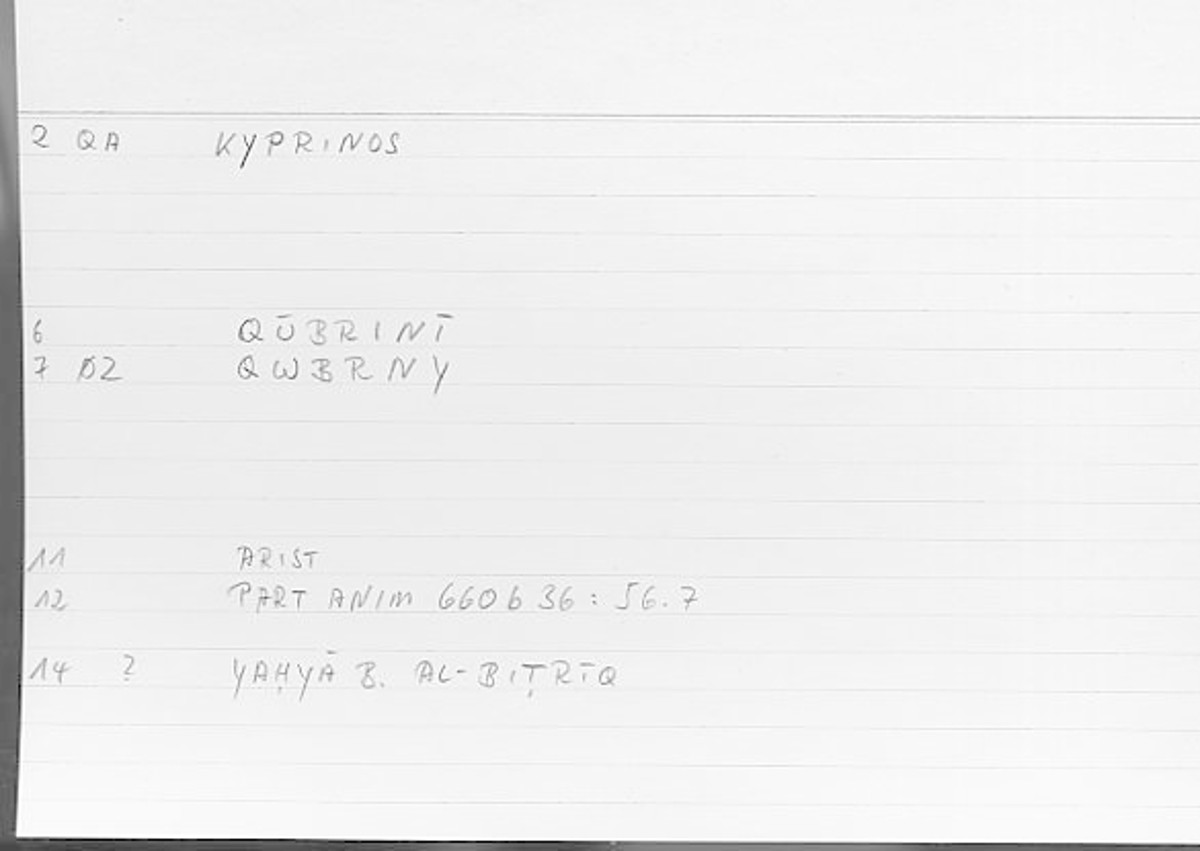 2 QA KYPRINOS
6 QŪBRINĪ
7 02 QWBRNY
11 ARIST
12 PART ANIM 660 b 36 : 56.7
14 ? YAḤYĀ B. AL-BIṬRĪQ